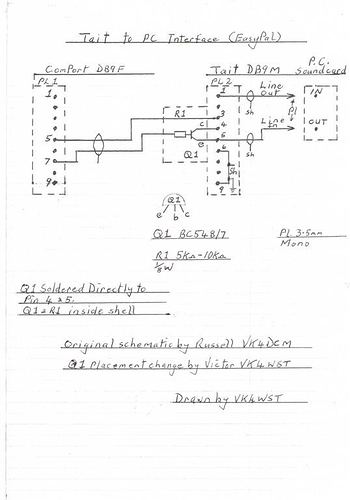 Tait to PC Interface (EasyPal)
ComPort DB9F
Tait DB9M
P.C. Soundcard
PL1
PL2
1
5
7
9
R1
Q1
c
e
1
3
4
5
6
9
Line out
Line In
sh
sh
Sh
Pl
IN
OUT
Q1
e b c
Q1 BC548/7
R1 5KΩ-10KΩ
1/8W
Pl 3.5mm
Mono
Q1 Soldered Directly to
Pin 4 & 5.
Q1 & R1 inside shell
Original schematic by Russell VK4DCM
Q1 Placement change by Victor VK4WST
Drawn by VK4WST